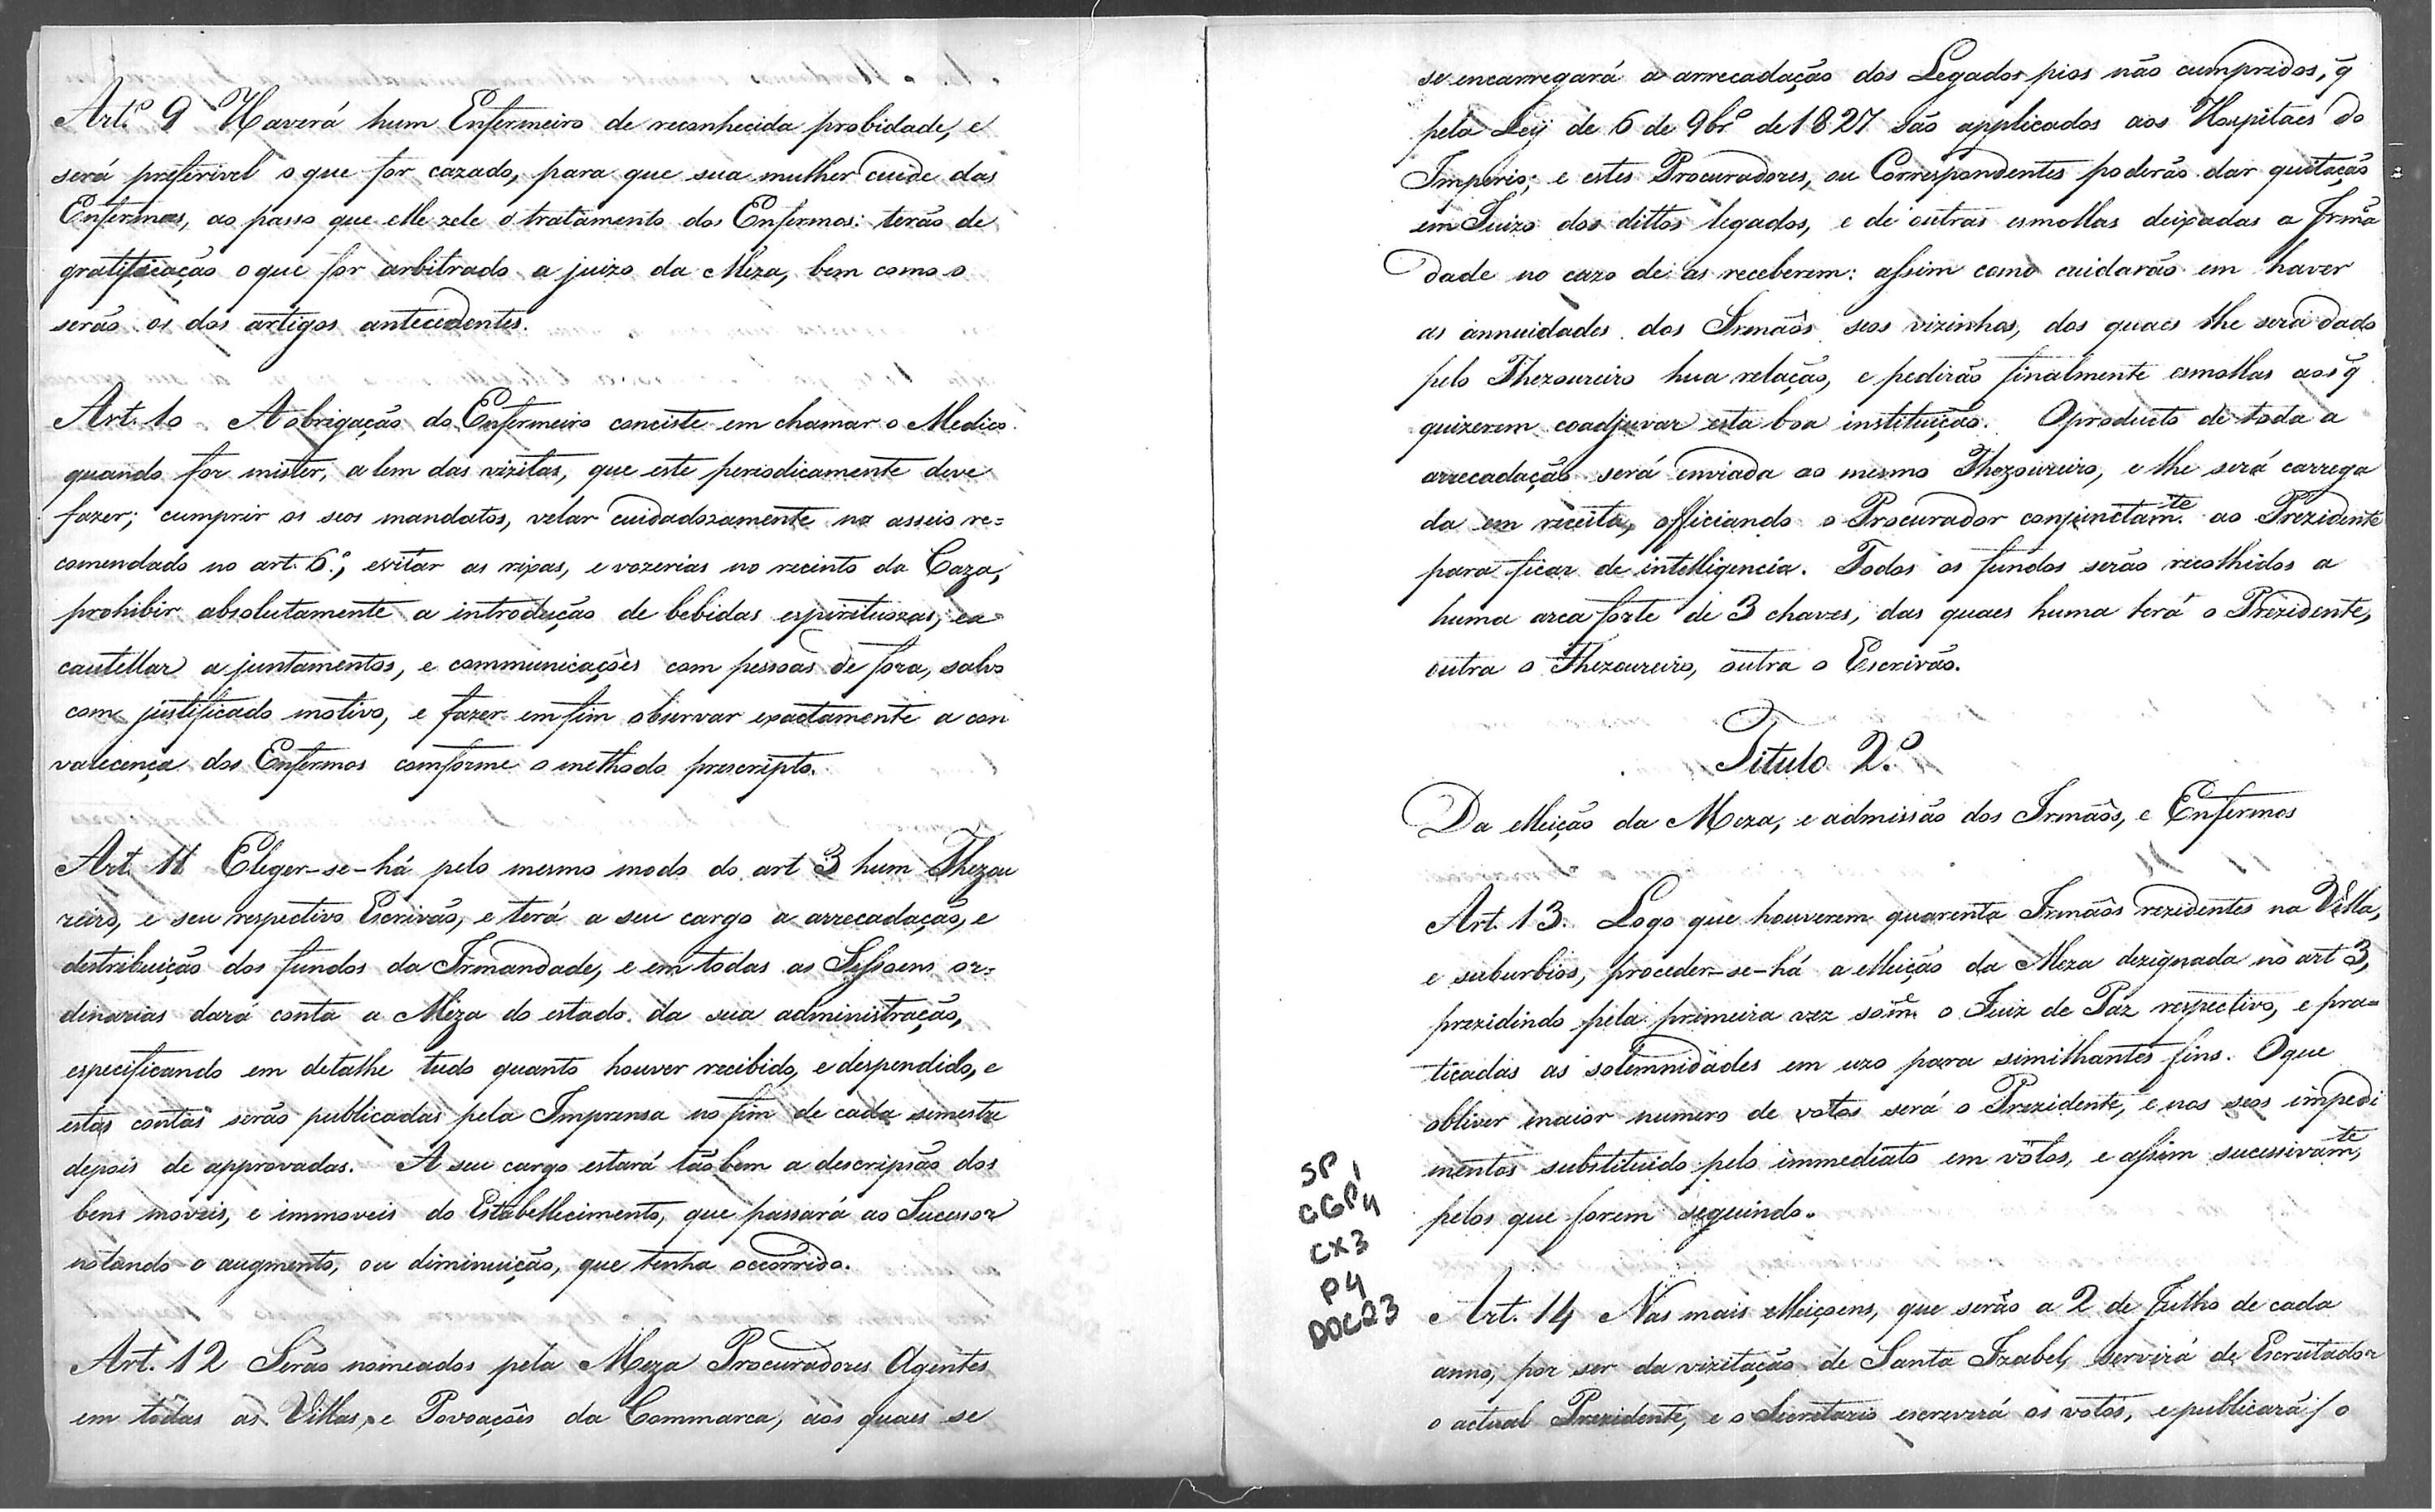 Art.º 9 Haverá hum Enfermeiro de reconhecida probidade, e
será preferivel o que for cazado, para que sua mulher cuide das
Enfermas, ao passo que elle zele o tratamento dos Enfermos: terão de
gratificação o que for arbitrado a juizo da Meza, bem como o
serão os dos artigos antecedentes.
Art. 10 A obrigação do Enfermeiro conciste em chamar o Medico
quando for mister, a lem das vizitas, que este periodicamente deve
fazer; cumprir os seos mandatos, velar cuidadozamente no asseio re=
comendado no art. 6.º, evitar as rixas, e vozerias no recinto da Caza,
prohibir absolutamente a introdução de bebidas espirituozas, ea
cautellar a juntamentos, e communicações com pessoas de fora, salvo
com justificado motivo, e fazer em fim observar exactamente a con
valecença dos Enfermos comforme o methodo prescripto.
Art. 11 Eleger-se-há pelo mesmo modo do art 3 hum Thezou
reiro, e seu respectivo Escrivão, e terá a seu cargo a arrecadação, e
destribuição dos fundos da Irmandade, e em todas as Sessoens or=
dinarias dará conta a Meza do estado da sua administração,
especificando em detalhe tudo quanto houver recibido, e despendido, e
estas contas serão publicadas pela Imprensa no fim de cada simestre
depois de approvadas. A seu cargo estará tãobem a descripsão dos
bens moveis, e immoveis do Estabellecimento, que passará ao Sucessor
notando o augmento, ou diminuição, que tenha occorrido.
Art. 12 Serão nomeados pela Meza Procuradores Agentes
em todas as Villas, e Povoações da Commarca, aos quaes se
se encarregará a arrecadação dos Legados pios não cumpridos, q̃
pela Ley de 6 de 9brº de 1827 são applicados aos Hospitaes do
Imperio; e estes Procuradores, ou Correspondentes poderão dar quitação
em Juizo dos dittos legados, e de outras esmollas deixadas a Irmã
dade no cazo de as receberem: assim como cuidarão em haver
as annuidades dos Irmãos seos vizinhos, dos quaes lhe será dado
pelo Thezoureiro hua relação, e pedirão finalmente esmollas aos q̃
quizerem coadjuvar esta boa instituição. O producto de toda a
arrecadação será enviada ao mesmo Thezoureiro, e lhe será carrega
da em receita, officiando o Procurador conjunctam.te ao Prezidente
para ficar de intelligencia. Todos os fundos serão recolhidos a
huma arca forte de 3 chaves, das quaes huma terá o Prezidente,
outra o Thezoureiro, outra o Escrivão.
Titulo 2.º
Da elleição da Meza, e admissão dos Irmãos, e Enfermos
Art. 13. Logo que houverem quarenta Irmãos rezidentes na Villa,
e suburbios, proceder-se-há a elleição da Meza dezignada no art 3,
prezidindo pela primeira vez som.e o Juiz de Paz respectivo, e pra=
ticadas as solemnidades em uzo para similhantes fins. O que
obtiver maior numero de votos será o Prezidente, e nos seos impedi
mentos substituido pelo immediato em votos, e assim sucessivam.te,
pelos que forem seguindo.
Art. 14 Nas mais elleiçoens, que serão a 2 de Julho de cada
anno, por ser da vizitação de Santa Izabel, servirá de Escrutador
o actual Prezidente, e o Secretario escreverá os votos, e publicará / o
SP 1
CGP4
CX3
P4
DOC23